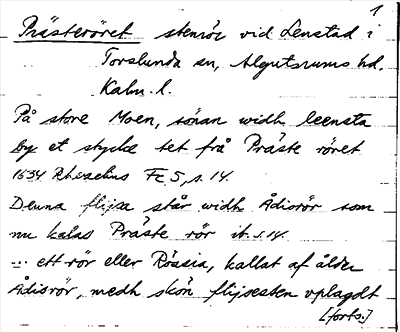 1
Prästeröret stenrör vid Lenstad i
Torslunda sn, Algutsrums hd.
Kalm. l.
På store Moen, sönan widh leensta
by et stycke tet frå Präste röret
1634 Rhezelius Fc 5, s. 14.
Denna flijsa står widh Ådisrör som
nu kalas Präste rör ib. s. 14.
... ett rör eller Rössia, kallat af ålder
Ådisrör, medh skön flijsesten vplagdt
[forts.]